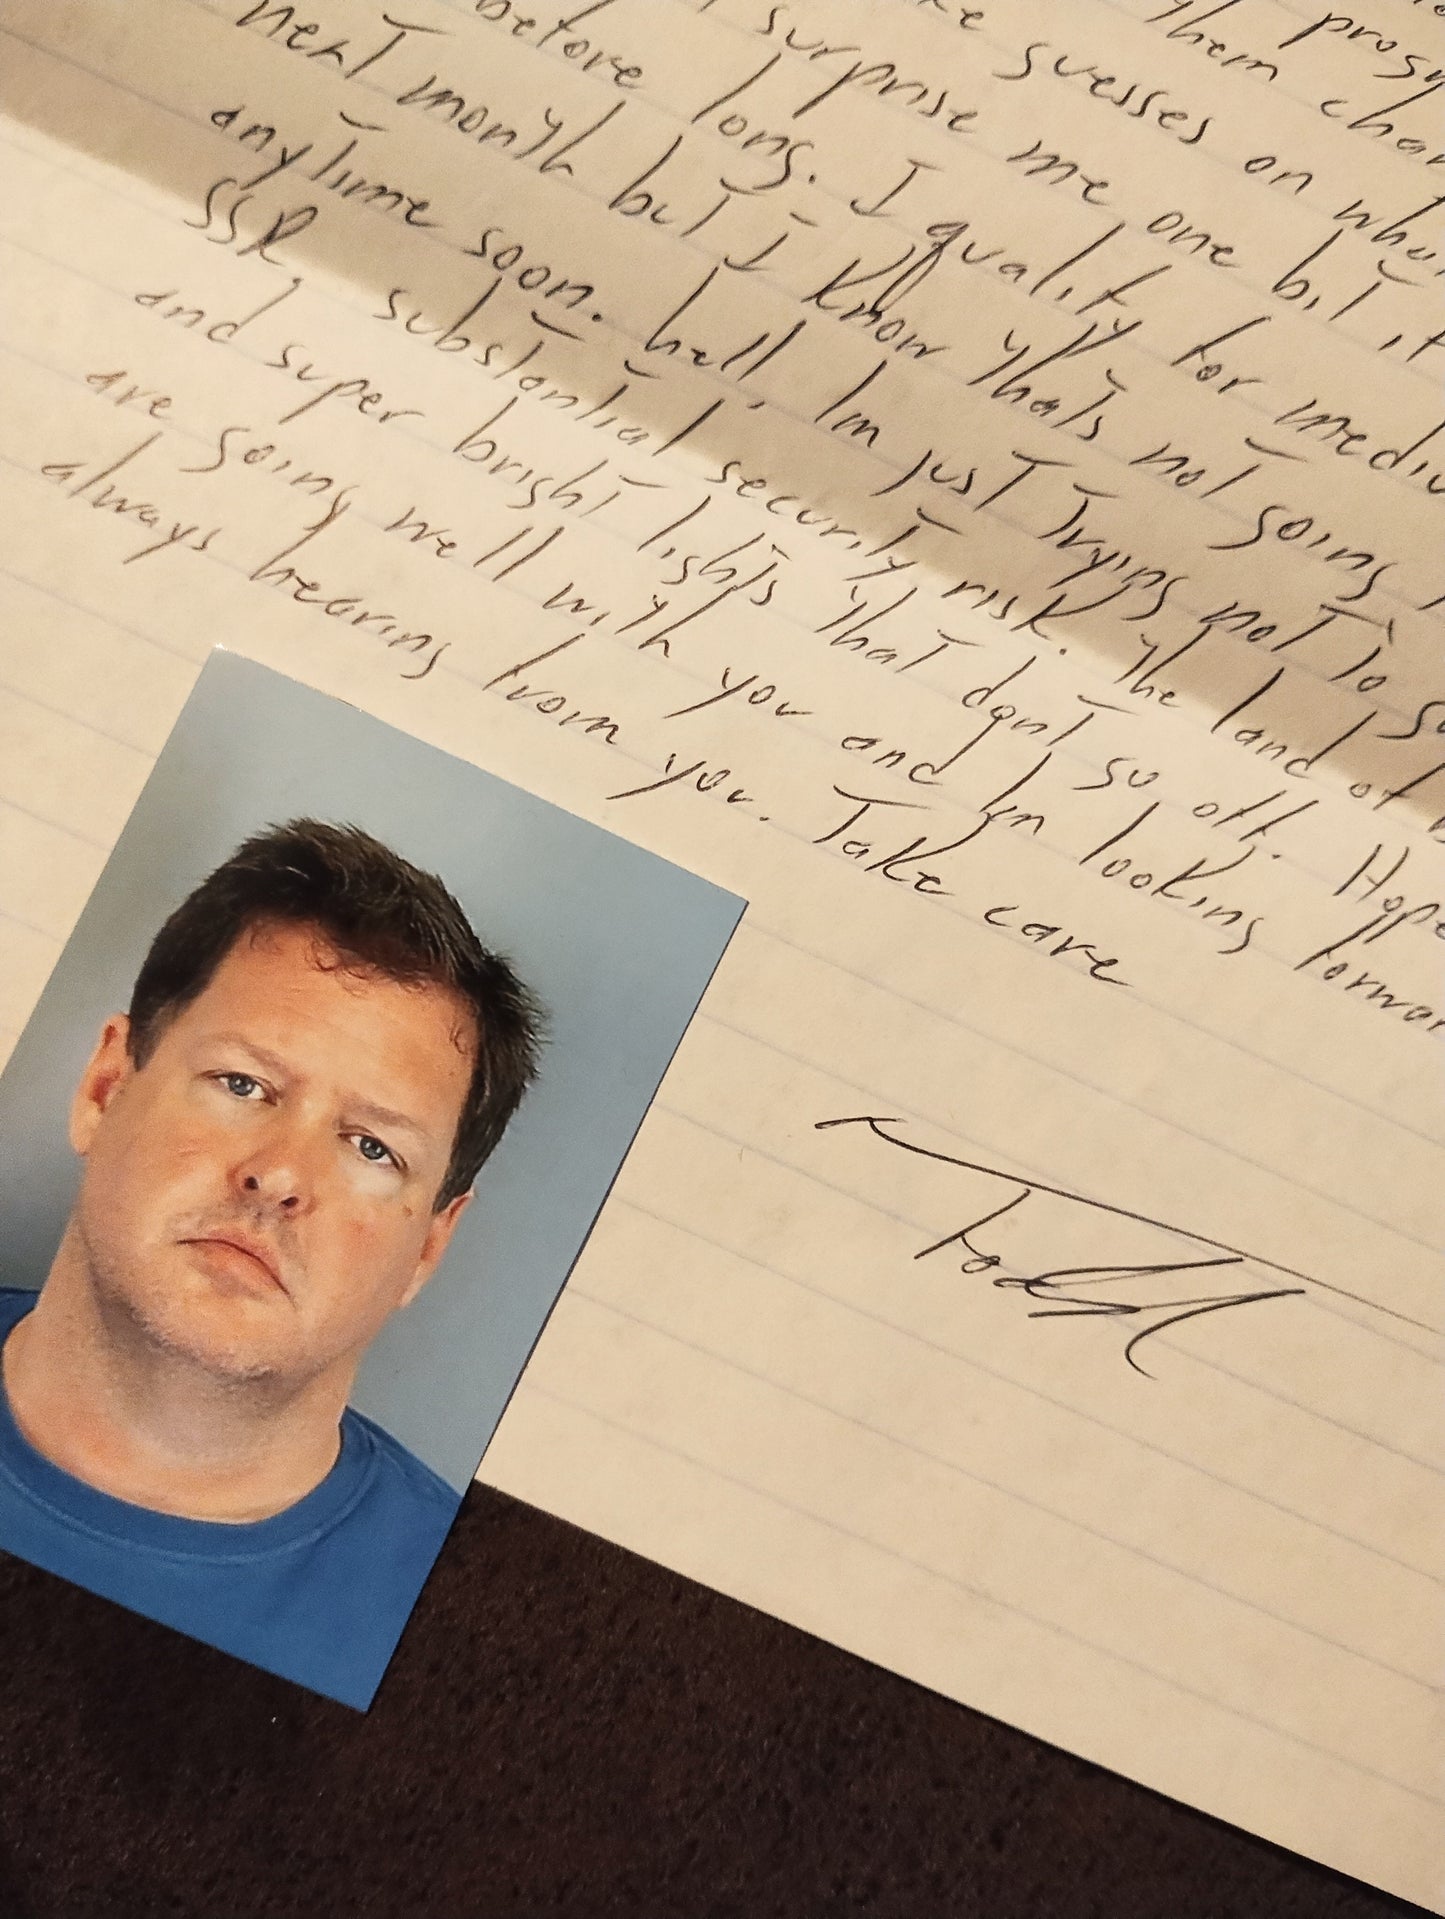 them
guesses on
surprise me one bit
before long. I qualify for
next month but I know thats not going
anytime soon. hell, Im just trying not to
SSR. substantial security risk. The land of
and super bright lights that dont go off. Hope
are going well with you and Im looking forwar
always hearing from you. Take care
Todd